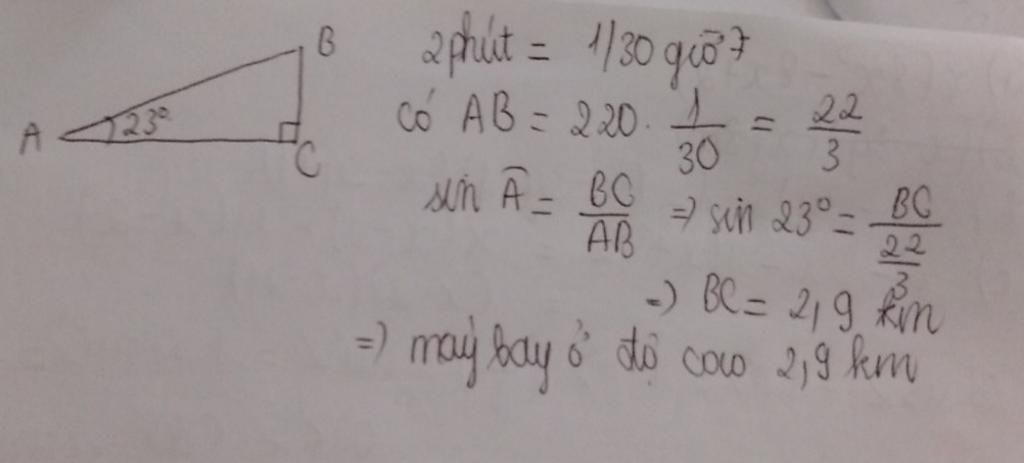 B
A 23° C
2 phút = 1/30 giờ
có AB = 220 . 1/30 = 22/3
sin A = BC/AB => sin 23° = BC/(22/3)
=> BC = 2,9 km
=> máy bay ở độ cao 2,9 km